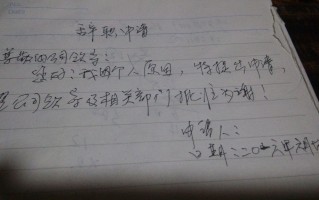 辞职申请
尊敬的司领导:
组的:我因个人原因,特提出申请,
望司领导及相关部门批准为谢!
申请人:
日期:二0一六年六月